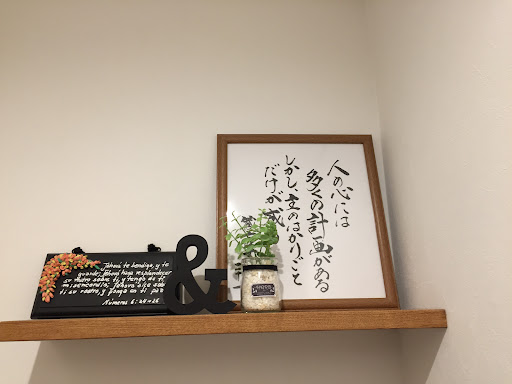 人の心には
多くの計画がある
しかし、主のはかりごと
だけが成
Jehová te bendiga, y te
guarde; Jehová haga resplandecer
su rostro sobre ti, y tenga de ti
misericordia; Jehová alce sobre
ti su rostro, y ponga en ti paz
Números 6:24-26
&